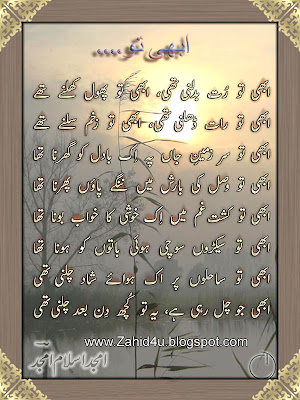 ابھی تو....
ابھی تو رُت بدلنی تھی، ابھی تو پھول کھلنے تھے
ابھی تو رات ڈھلنی تھی، ابھی تو زخم سلنے تھے
ابھی تو سر زمینِ جاں پہ اِک بادل کو گھرنا تھا
ابھی تو وصل کی بارش میں ننگے پاؤں پھرنا تھا
ابھی تو کشتِ غم میں اِک خوشی کا خواب بونا تھا
ابھی تو سینکڑوں سوچی ہوئی باتوں کو ہونا تھا
ابھی تو ساحلوں پر اک ہوائے شاد چلنی تھی
ابھی جو چل رہی ہے، یہ تو کُچھ دِن بعد چلنی تھی
www.Zahid4u.blogspot.com
امجد اسلام امجد